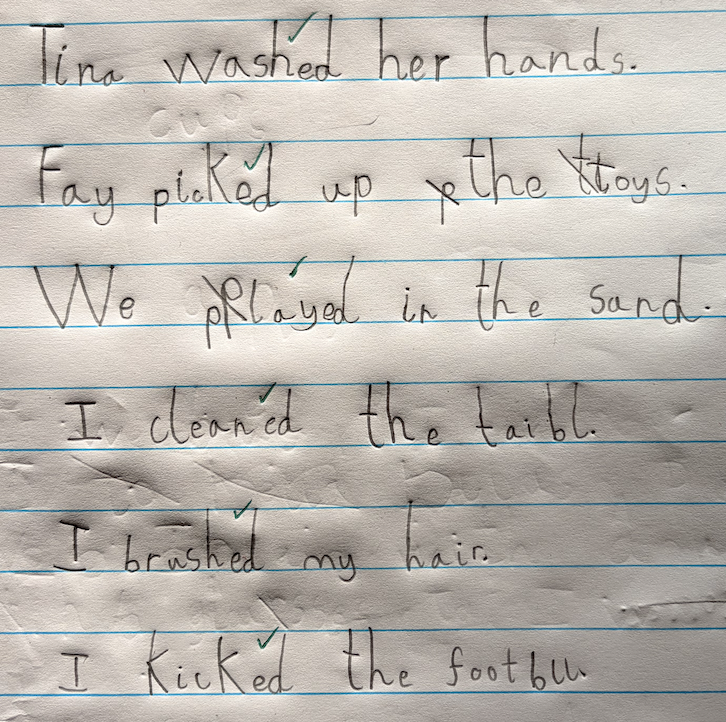 Tina washed her hands.
Fay picked up the toys.
We played in the sand.
I cleaned the taibl.
I brushed my hair.
I kicked the footbll.